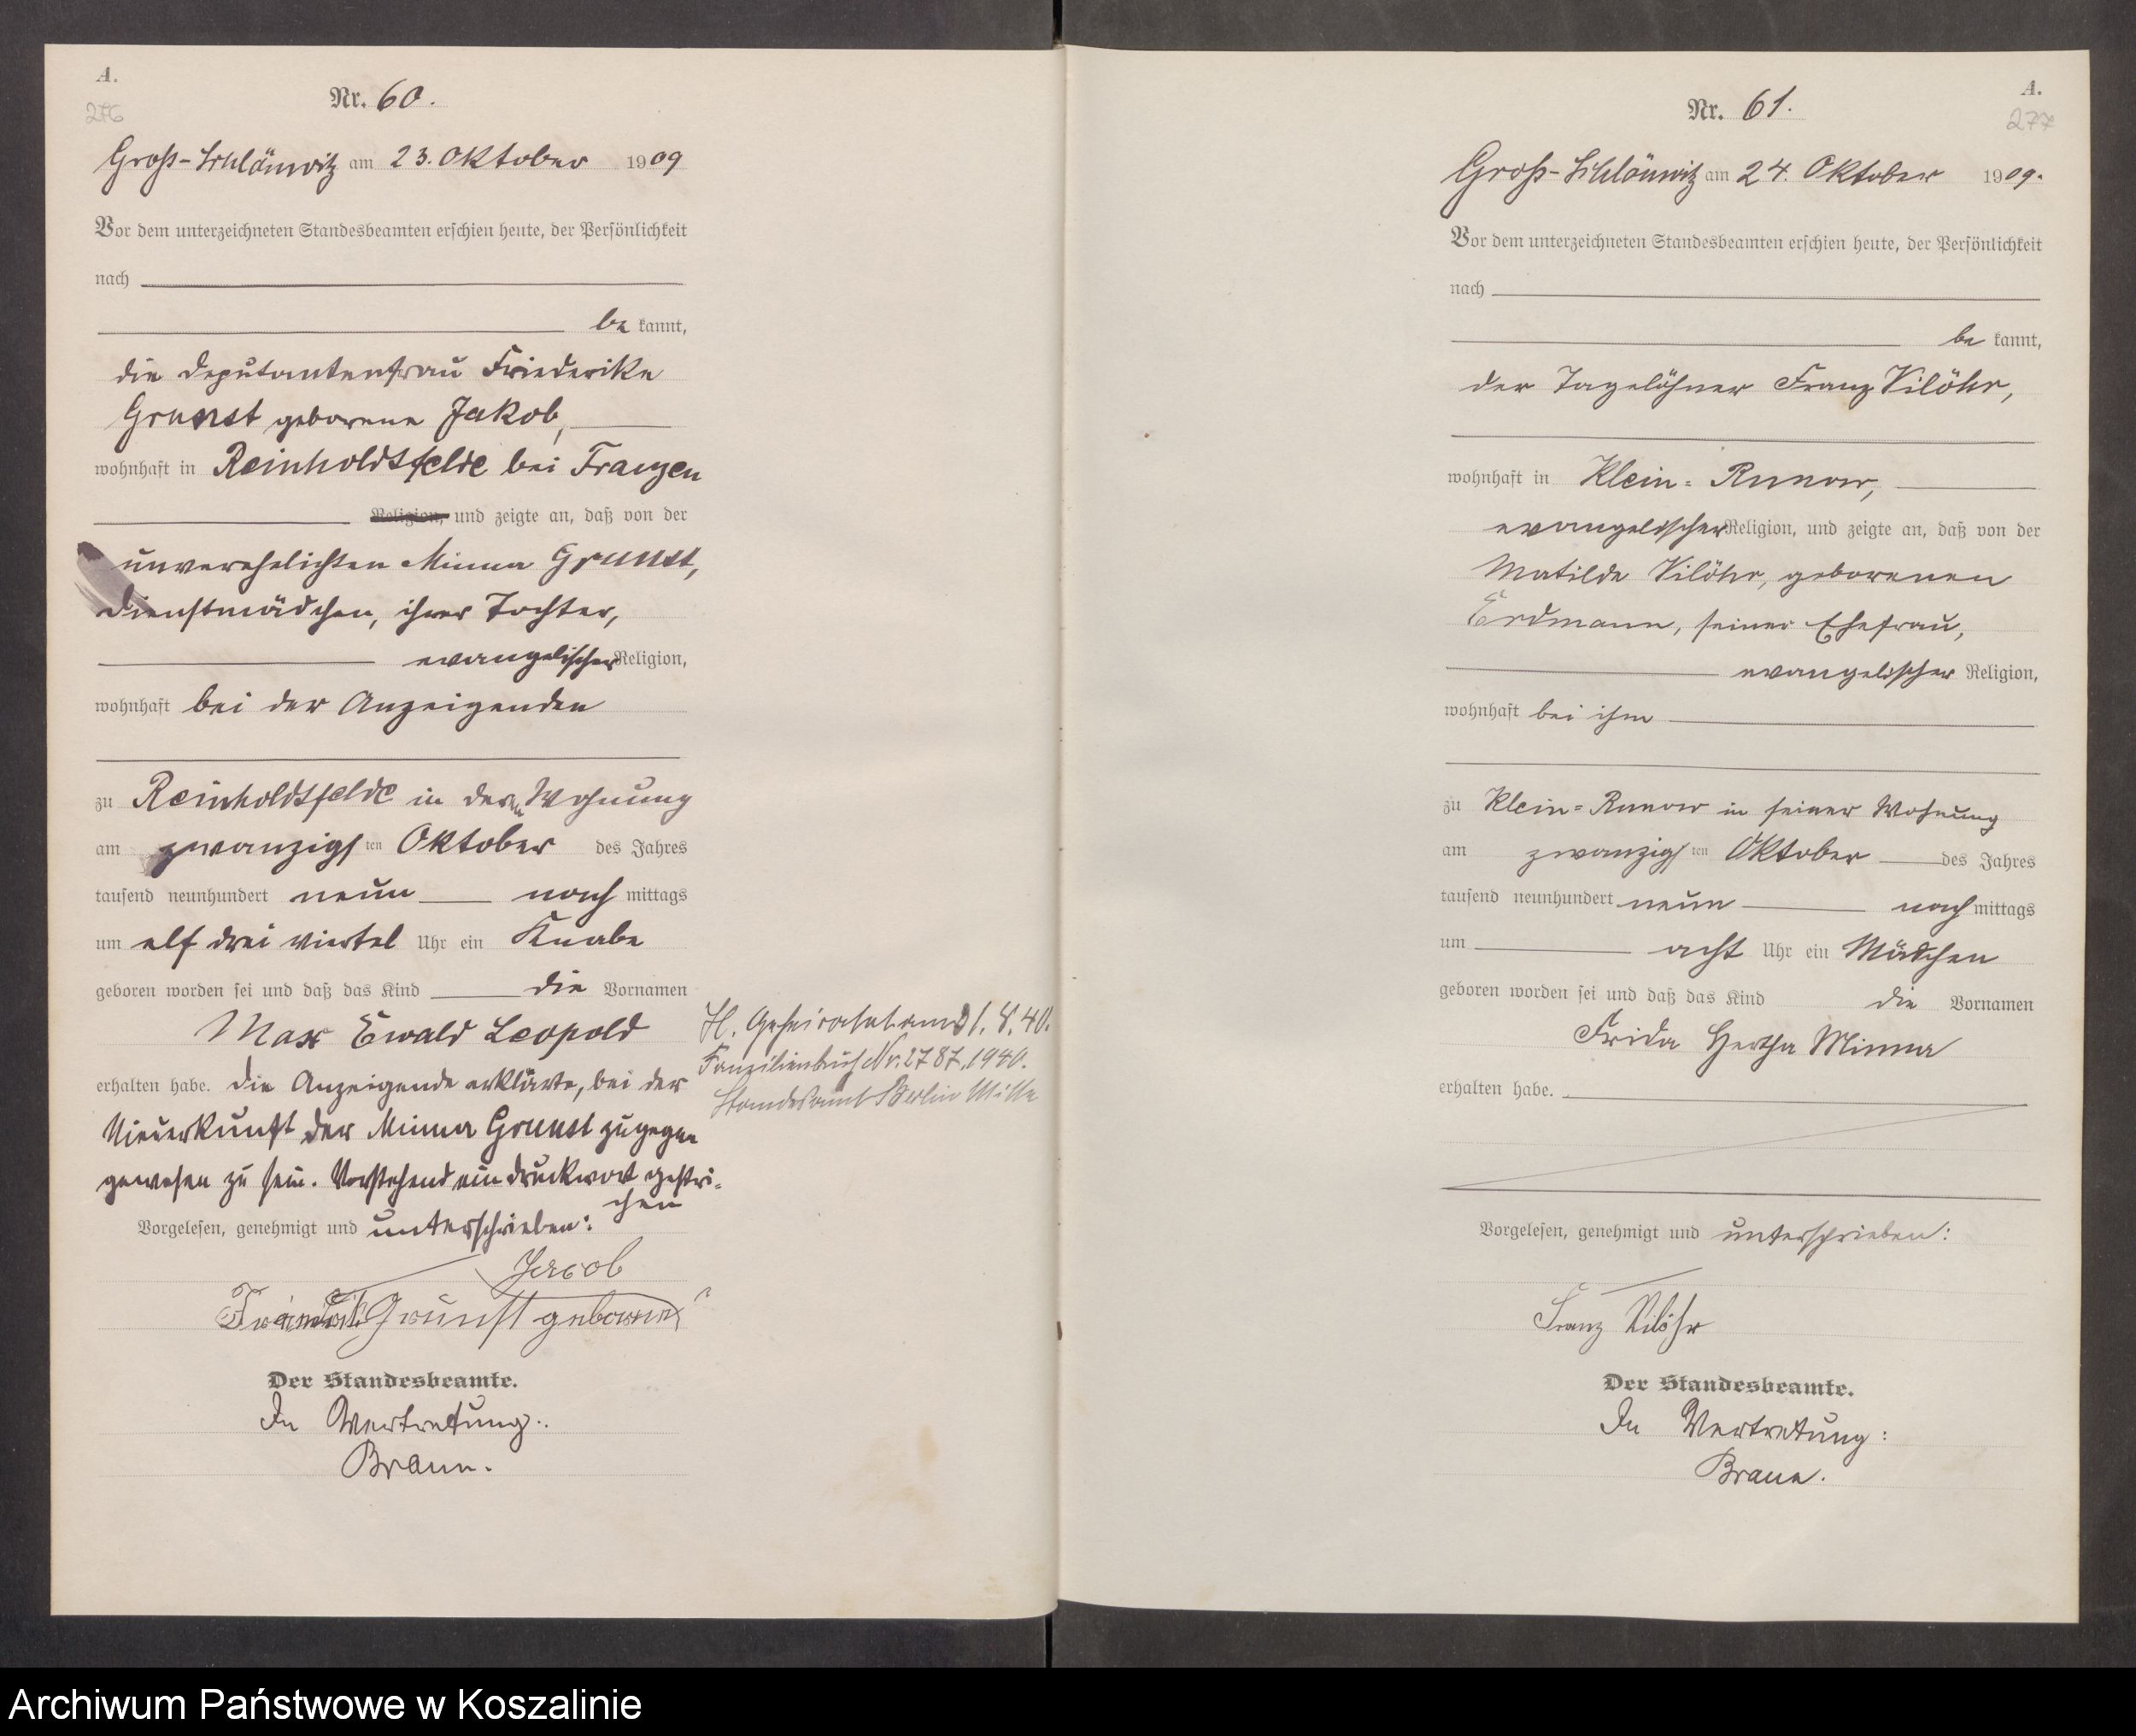 A.
276
Nr. 60.
Groß-Schlönwitz am 23. Oktober 1909
Vor dem unterzeichneten Standesbeamten erschien heute, der Persönlichkeit
nach
be kannt,
die Deputantenfrau Friederike
Grunst geborene Jakob,
wohnhaft in Reinholdsfelde bei Franzen
Religion, und zeigte an, daß von der
unverehelichten Minna Grunst,
Dienstmädchen, ihrer Tochter,
evangelischer Religion,
wohnhaft bei der Anzeigenden
zu Reinholdsfelde in deren Wohnung
am zwanzigsten Oktober des Jahres
tausend neunhundert neun nach mittags
um elf drei viertel Uhr ein Knabe
geboren worden sei und daß das Kind die Vornamen
Max Ewald Leopold
erhalten habe. Die Anzeigende erklärte, bei der
Niederkunft der Minna Grunst zugegen
gewesen zu sein. Vorstehend ein Druckwort gestri-
chen
Vorgelesen, genehmigt und unterschrieben:
Jacob
Friederike Grunst geborene
Der Standesbeamte.
In Vertretung:
Braun.
H. Geheiratet am 31.8.40.
Familienbuch Nr. 2787.1940.
Standesamt Berlin Mitte
A.
277
Nr. 61.
Groß-Schlönwitz am 24. Oktober 1909.
Vor dem unterzeichneten Standesbeamten erschien heute, der Persönlichkeit
nach
be kannt,
der Tagelöhner Franz Vilöhr,
wohnhaft in Klein-Runow,
evangelischer Religion, und zeigte an, daß von der
Matilde Vilöhr, geborenen
Erdmann, seiner Ehefrau,
evangelischer Religion,
wohnhaft bei ihm
zu Klein-Runow in seiner Wohnung
am zwanzigsten Oktober des Jahres
tausend neunhundert neun nach mittags
um acht Uhr ein Mädchen
geboren worden sei und daß das Kind die Vornamen
Frida Hertha Minna
erhalten habe.
Vorgelesen, genehmigt und unterschrieben:
Franz Vilöhr
Der Standesbeamte.
In Vertretung:
Braun.
Archiwum Państwowe w Koszalinie